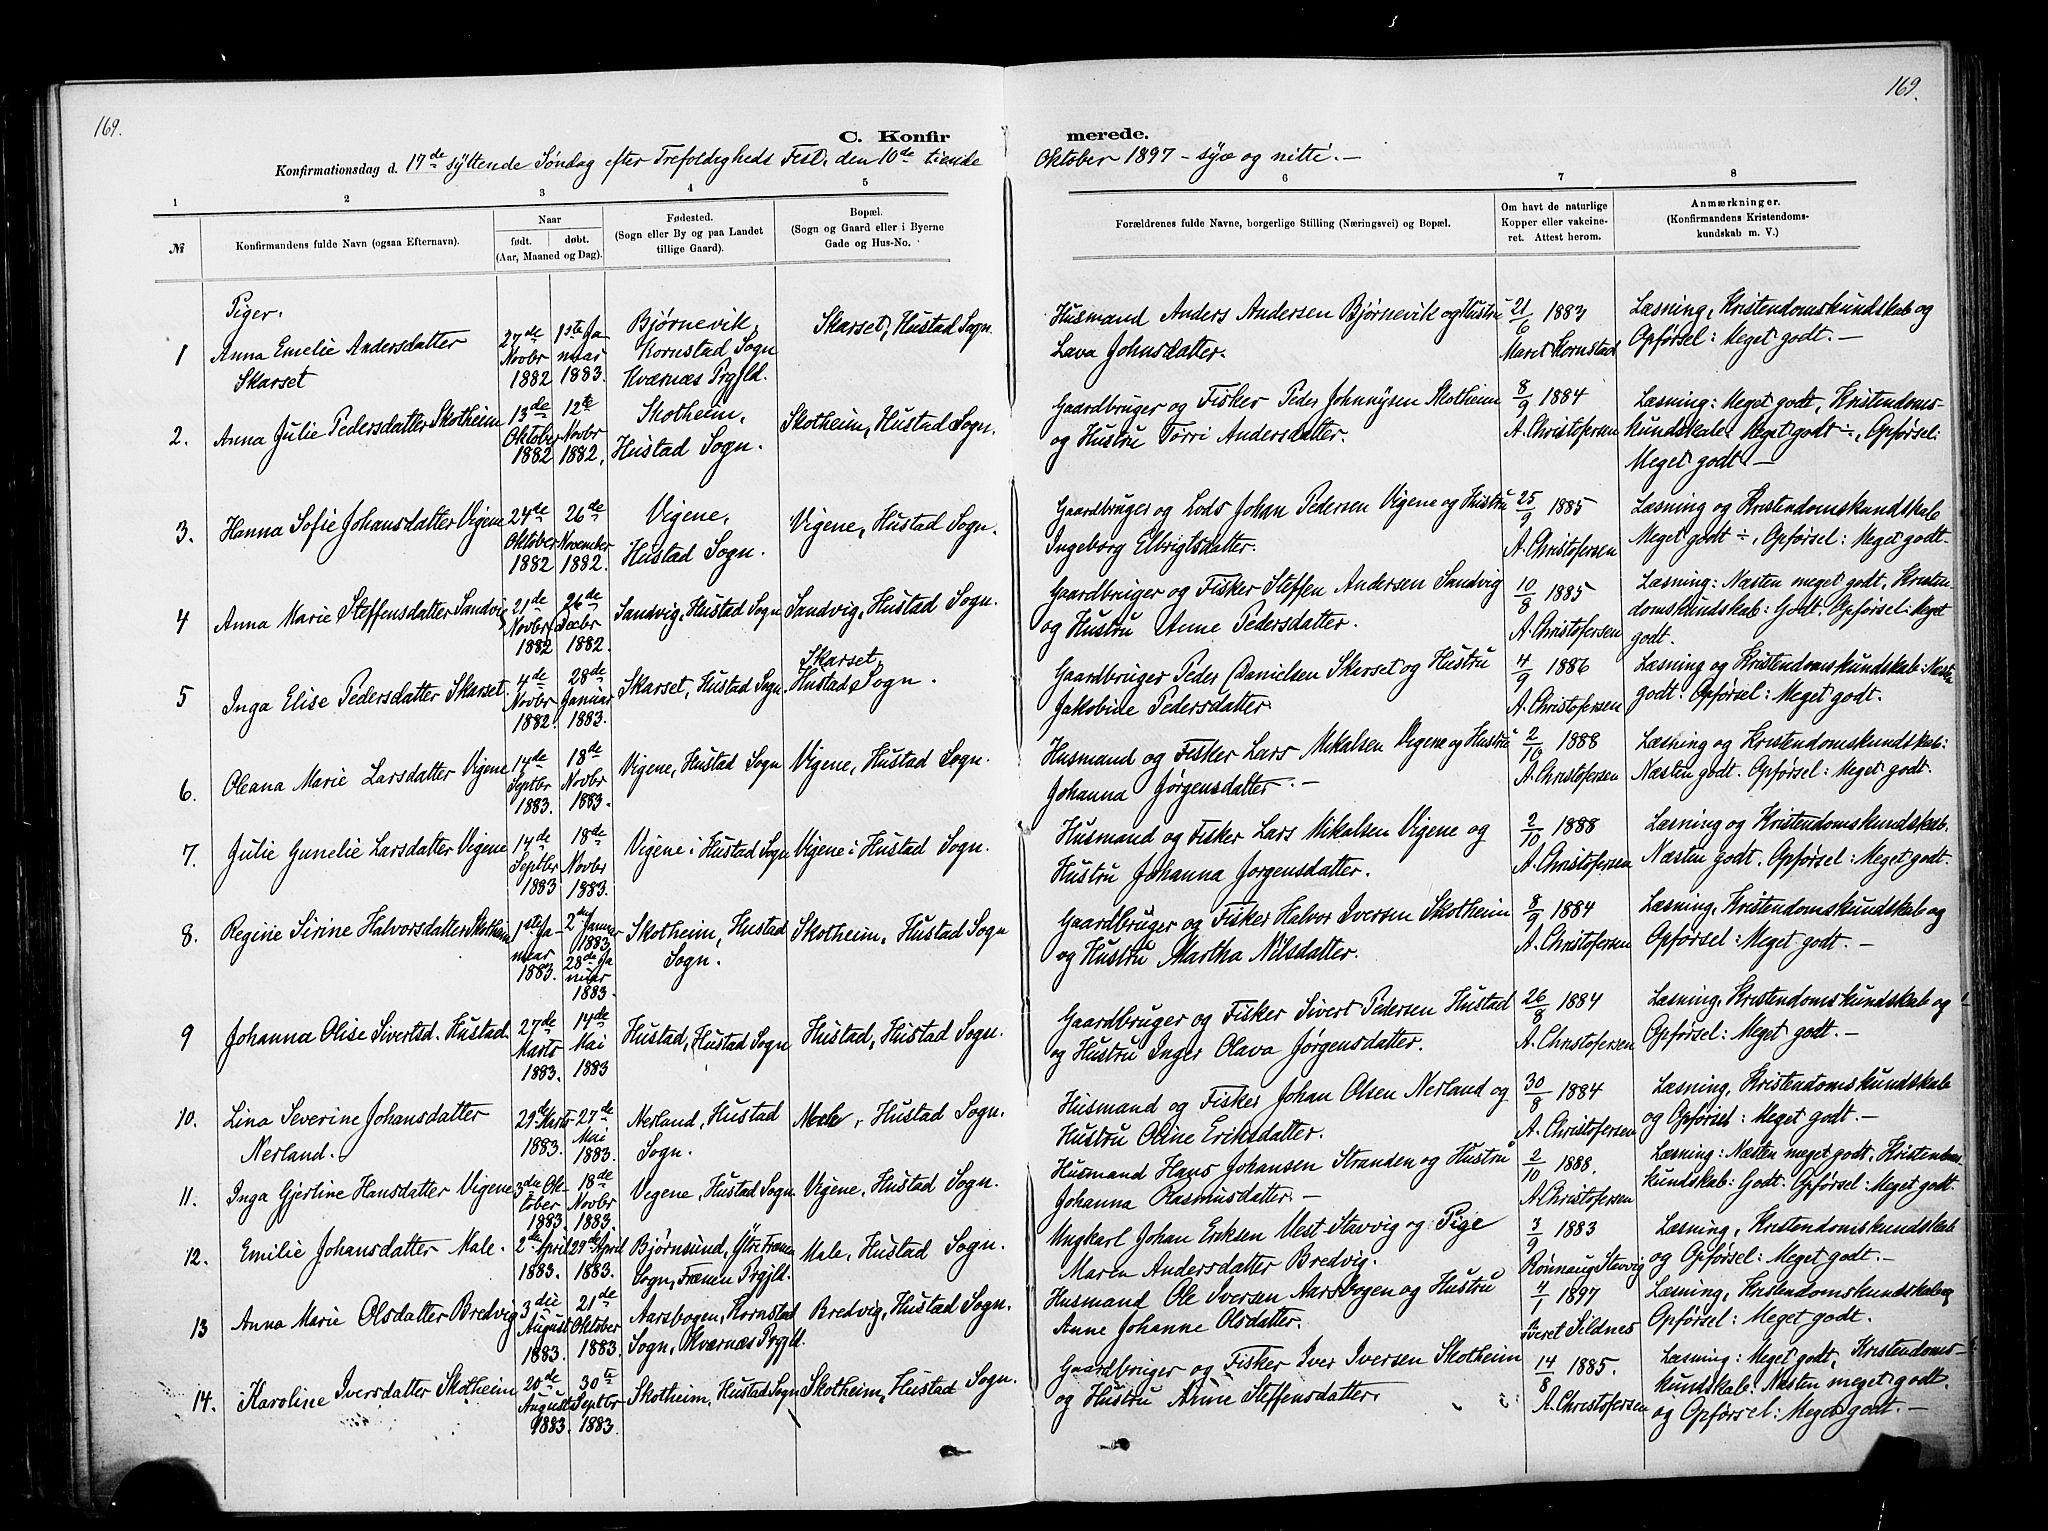 169.
169.
C. Konfirmerede.
Konfirmationsdag d. 17de syttende Søndag efter Trefoldigheds Fest, den 10de tiende Oktober 1897 - syv og nitti. -
1 2 3 4 5 6 7 8
№
Konfirmandens fulde Navn (ogsaa Efternavn).
Naar
født. døbt.
(Aar, Maaned og Dag).
Fødested.
(Sogn eller By og paa Landet
tillige Gaard).
Bopæl.
(Sogn og Gaard eller i Byerne
Gade og Hus-No.
Forældrenes fulde Navne, borgerlige Stilling (Næringsvei) og Bopæl.
Om havt de naturlige
Kopper eller vakcine-
ret. Attest herom.
Anmærkninger.
(Konfirmandens Kristendoms-
kundskab m. V.)
Piger.
1 Anna Emelie Andersdatter Skarset
27de Novbr 1882
1ste Januar 1883.
Bjørnevik, Kornstad Sogn Kværnæs Prgjld.
Skarset, Hustad Sogn.
Husmand Anders Andersen Bjørnevik og Hustru
Lava Johnsdatter.
21/6 1883
Maret Kornstad
Læsning, Kristendomskundskab og
Opførsel: Meget godt. -
2. Anna Julie Pedersdatter Skotheim
13de Oktober 1882
12te Novbr 1882.
Skotheim, Hustad Sogn.
Skotheim, Hustad Sogn.
Gaardbruger og Fisker Peder Johnnysen Skotheim
og Hustru Torri Andersdatter.
8/9 1884
A. Christofersen
Læsning: Meget godt, Kristendoms-
kundskab: Meget godt ÷, Opførsel:
Meget godt. -
3. Hanna Sofie Johansdatter Vigene
24de Oktober 1882
26de November 1882.
Vigene, Hustad Sogn.
Vigene, Hustad Sogn.
Gaardbruger og Lods Johan Pedersen Vigene og Hustru
Ingeborg Elbrigtsdatter.
25/9 1885
A. Christofersen
Læsning og Kristendomskundskab
Meget godt ÷, Opførsel: Meget godt.
4 Anna Marie Steffensdatter Sandvig
21de Novbr 1882
26de Decbr 1882.
Sandvig, Hustad Sogn
Sandvig, Hustad Sogn.
Gaardbruger og Fisker Steffen Andersen Sandvig
og Hustru Anne Pedersdatter.
10/8 1885
A. Christofersen
Læsning: Næsten meget godt, Kristen-
domskundskab: Godt. Opførsel: Meget
godt.
5 Inga Elise Pedersdatter Skarset.
4de Novbr 1882.
28de Januar 1883.
Skarset, Hustad Sogn.
Skarset, Hustad Sogn.
Gaardbruger Peder Danielsen Skarset og Hustru
Jakobine Pedersdatter.
4/9 1886
A. Christofersen
Læsning og Kristendomskundskab: Næsten
godt. Opførsel: Meget godt.
6. Oleana Marie Larsdatter Vigene
14de Septbr 1883.
18de Novbr 1883.
Vigene, Hustad Sogn
Vigene, Hustad Sogn.
Husmand og Fisker Lars Mikalsen Vigene og Hustru
Johanna Jørgensdatter. -
2/10 1888
A. Christofersen
Læsning og Kristendomskundskab:
Næsten godt. Opførsel: Meget godt.
7. Julie Gunelie Larsdatter Vigene
14de Septbr 1883
18de Novbr 1883.
Vigene i Hustad Sogn
Vigene i Hustad Sogn.
Husmand og Fisker Lars Mikalsen Vigene og
Hustru Johanna Jorgensdatter.
2/10 1888
A. Christofersen
Læsning og Kristendomskundskab.
Næsten godt. Opførsel: Meget godt.
8. Regine Sirine Halvorsdatter Skotheim
1ste Januar 1883.
2den Januar 1883.
28de Januar 1883.
Skotheim, Hustad Sogn.
Skotheim, Hustad Sogn
Gaardbruger og Fisker Halvor Iversen Skotheim
og Hustru Martha Nilsdatter.
8/9 1884
A. Christofersen
Læsning, Kristendomskundskab og
Opførsel: Meget godt. -
9 Johanna Olise Sivertsd. Hustad.
27de Marts 1883.
14de Mai 1883
Hustad, Hustad Sogn
Hustad, Hustad Sogn.
Gaardbruger og Fisker Sivert Pedersen Hustad
og Hustru Inger Olava Jørgensdatter.
26/8 1884
A. Christofersen
Læsning, Kristendomskundskab og
Opførsel: Meget godt. -
10. Lina Severine Johansdatter Nerland.
29de Marts 1883.
27de Mai 1883.
Nerland, Hustad Sogn.
Male, Hustad Sogn.
Husmand og Fisker Johan Olsen Nerland og
Hustru Oline Eriksdatter.
30/8 1884
A. Christofersen
Læsning, Kristendomskundskab
og Opførsel: Meget godt. -
11. Inga Gjertine Hansdatter Vigene
3die Oktober 1883.
18de Novbr 1883.
Vigene, Hustad Sogn
Vigene, Hustad Sogn.
Husmand Hans Johansen Stranden og Hustru
Johanna Rasmusdatter. -
2/10 1888.
A. Christofersen
Læsning: Næsten meget godt. Kristendoms-
kundskab: Godt. Opførsel: Meget godt.
12. Emilie Johansdatter Male.
2den April 1883.
29de April 1883.
Bjørnsund, Ytre Frænen Sogn, Frænen Prgjld.
Male, Hustad Sogn.
Ungkarl Johan Eriksen Vest Stavvig og Pige
Maren Andersdatter Bredvig.
3/9 1883
Rønnaug Stavvig
Læsning, Kristendomskundskab
og Opførsel: Meget godt. -
13 Anna Marie Olsdatter Bredvig
3die August 1883.
21de Oktober 1883.
Aarsbogen, Kornstad Sogn, Kværnæs Prgjld.
Bredvig, Hustad Sogn.
Husmand Ole Iversen Aarsbogen og Hustru
Anne Johanne Olsdatter.
4/1 1897
Sildnes
Læsning, Kristendomskundskab og
Opførsel: Meget godt.
14. Karoline Iversdatter Skotheim
20de August 1883.
30te Septbr 1883.
Skotheim, Hustad Sogn
Skotheim, Hustad Sogn.
Gaardbruger og Fisker Iver Iversen Skotheim
og Hustru Anne Steffensdatter.
14/8 1885.
A. Christofersen
Læsning: Meget godt, Kristendoms-
kundskab: Næsten meget godt.
og Opførsel: Meget godt. -